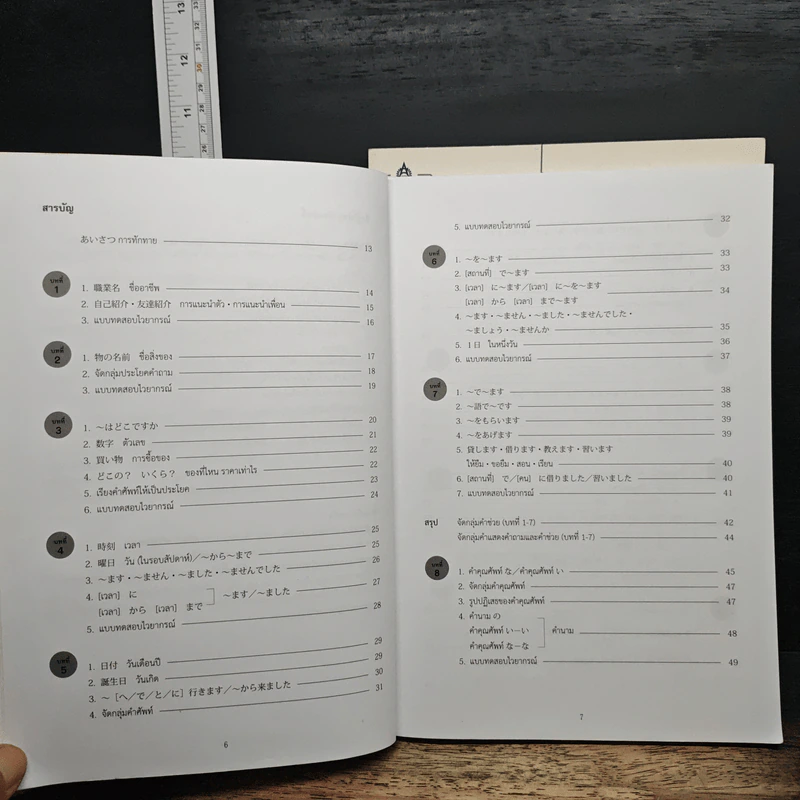 13
12
11
สารบัญ
あいさつ การทักทาย 13
บทที่ 1
1. 職業名 ชื่ออาชีพ 14
2. 自己紹介・友達紹介 การแนะนำตัว・การแนะนำเพื่อน 15
3. แบบทดสอบไวยากรณ์ 16
บทที่ 2
1. 物の名前 ชื่อสิ่งของ 17
2. จัดกลุ่มประโยคคำถาม 18
3. แบบทดสอบไวยากรณ์ 19
บทที่ 3
1. ~はどこですか 20
2. 数字 ตัวเลข 21
3. 買い物 การซื้อของ 22
4. どこの? いくら? ของที่ไหน ราคาเท่าไร 22
5. เรียงคำศัพท์ให้เป็นประโยค 23
6. แบบทดสอบไวยากรณ์ 24
บทที่ 4
1. 時刻 เวลา 25
2. 曜日 วัน (ในรอบสัปดาห์)/~から~まで 25
3. ~ます・~ません・~ました・~ませんでした 26
4. [เวลา] に
[เวลา] から [เวลา] まで ~ます/~ました 27
5. แบบทดสอบไวยากรณ์ 28
บทที่ 5
1. 日付 วันเดือนปี 29
2. 誕生日 วันเกิด 29
3. ~ [へ/で/と/に] 行きます/~から来ました 30
4. จัดกลุ่มคำศัพท์ 31
6
5. แบบทดสอบไวยากรณ์ 32
บทที่ 6
1. ~を~ます 33
2. [สถานที่] で~ます 33
3. [เวลา] に~ます/[เวลา] に~を~ます 34
[เวลา] から [เวลา] まで~ます
4. ~ます・~ません・~ました・~ませんでした・
~ましょう・~ませんか 35
5. 1日 ในหนึ่งวัน 36
6. แบบทดสอบไวยากรณ์ 37
บทที่ 7
1. ~で~ます 38
2. ~語で~です 38
3. ~をもらいます 39
4. ~をあげます 39
5. 貸します・借ります・教えます・習います
ให้ยืม・ขอยืม・สอน・เรียน 40
6. [สถานที่] で/[คน] に借りました/習いました 40
7. แบบทดสอบไวยากรณ์ 41
สรุป จัดกลุ่มคำช่วย (บทที่ 1-7) 42
จัดกลุ่มคำแสดงคำถามและคำช่วย (บทที่ 1-7) 44
บทที่ 8
1. คำคุณศัพท์ な/คำคุณศัพท์ い 45
2. จัดกลุ่มคำคุณศัพท์ 47
3. รูปปฏิเสธของคำคุณศัพท์ 47
4. คำนาม の
คำคุณศัพท์ い−い คำนาม 48
คำคุณศัพท์ な−な
5. แบบทดสอบไวยากรณ์ 49
7